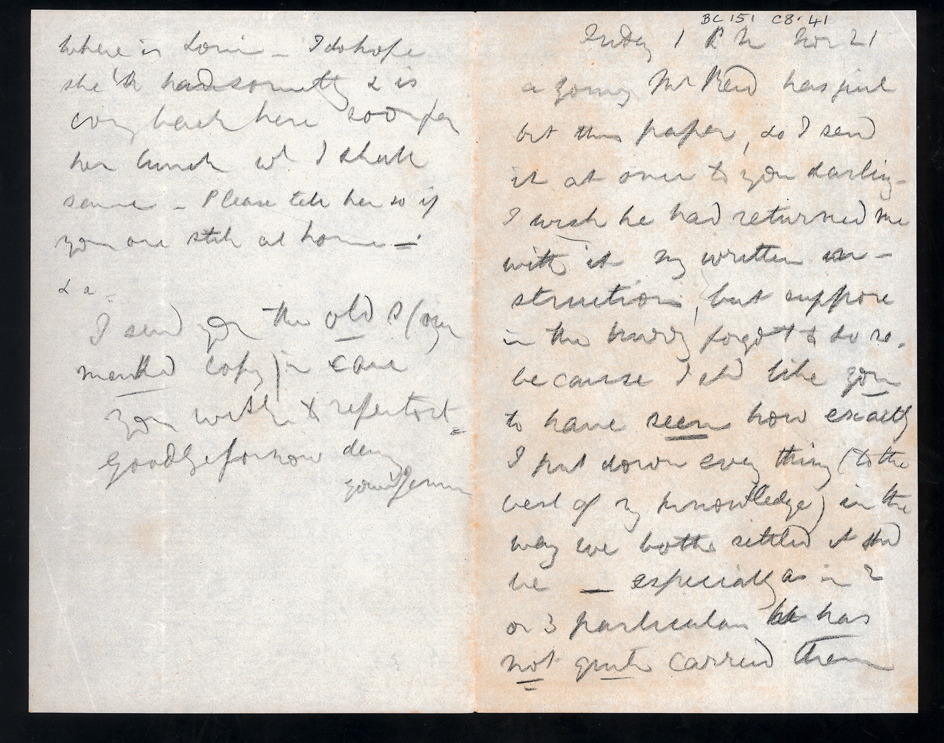 BC 151 C8.41
1 P.M. Nov 21
a young Mr Reid has just
this paper, so I send
it at once to you darling -
I wish he had returned me
with it my written in -
structions, but suppose
in the hurry forgot to do so,
because I shd like you
to have seen how exactly
I put down every thing (to the
best of my knowledge) in the
way we both settled it shd
be _ especially as in 2
or 3 particulars he has
not quite carried them
where is - I do hope
she'll had something & is
back here soon for
her lunch wh I shall
- Please tell her so if
you are still at home -
I send you the old
copy) in case
you wish to refer to it
Goodbye for now